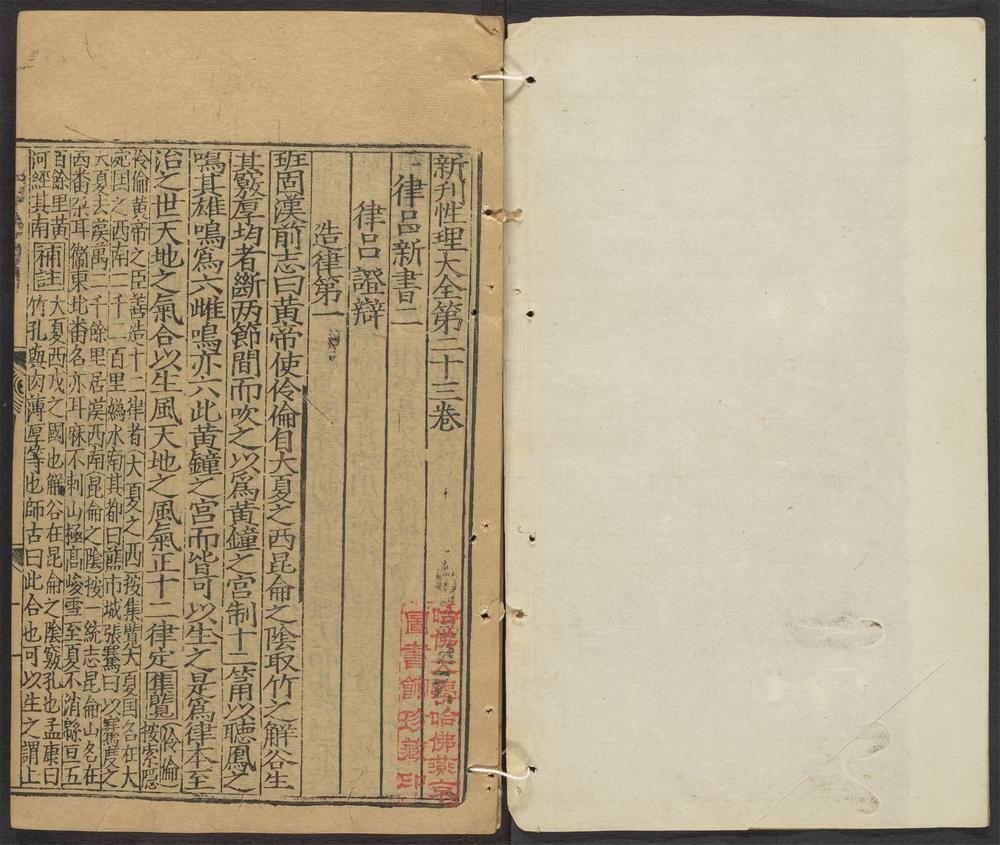 新刋性理大全第二十三卷
律呂新書二
律呂證辯
造律第一
班固漢前志曰黃帝使伶倫自大夏之西昆侖之陰取竹之解谷生
其竅厚均者斷两節間而吹之以爲黃鐘之宮制十二筩以聽鳳之
鳴其雄鳴爲六雌鳴亦六此黃鐘之宮而皆可以生之是爲律本至
治之世天地之氣合以生風天地之風氣正十二律定集覽伶倫按索隱
伶倫黃帝之臣善造十二律者大夏之西按集覽大夏国名在大
宛国之西南二千二百里媯水南其都曰藍市城張騫曰以騫度之
大夏去漢萬二千餘里居漢西南昆侖之陰按一統志昆侖山名在
西畨朶耳東北畨名亦耳麻不剌山極高峻雪至夏不消緜亘五
百餘里黃河經其南補註大夏西戎之國也解谷在昆侖之陰竅孔也孟康曰
竹孔與肉薄厚等也師古曰此合也可以生之謂上
哈佛大學哈佛燕京
圖書館珍藏印